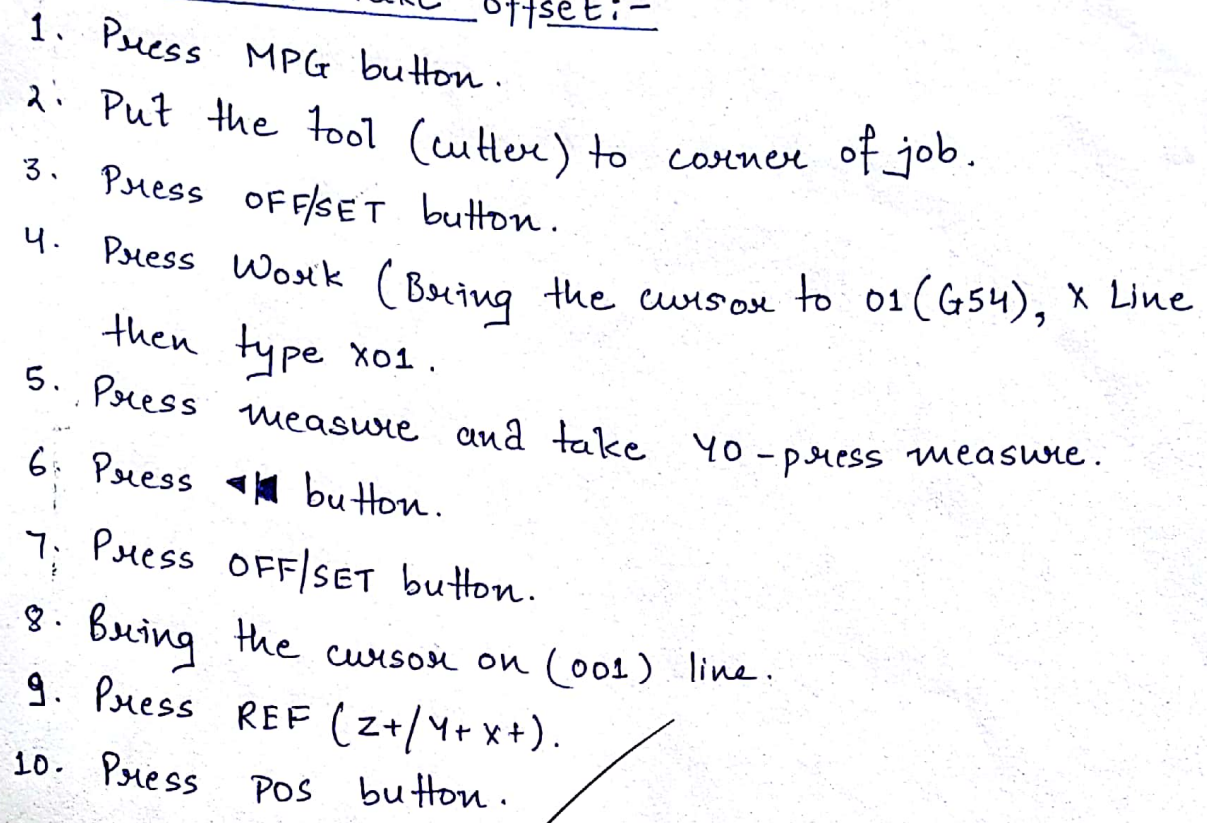 offset:-
1. Press MPG button.
2. Put the tool (cutter) to corner of job.
3. Press OFF/SET button.
4. Press Work (Bring the cursor to 01(G54), X Line
then type X01.
5. Press measure and take Y0-press measure.
6. Press button.
7. Press OFF/SET button.
8. Bring the cursor on (001) line.
9. Press REF (Z+/Y+ X+).
10. Press POS button.